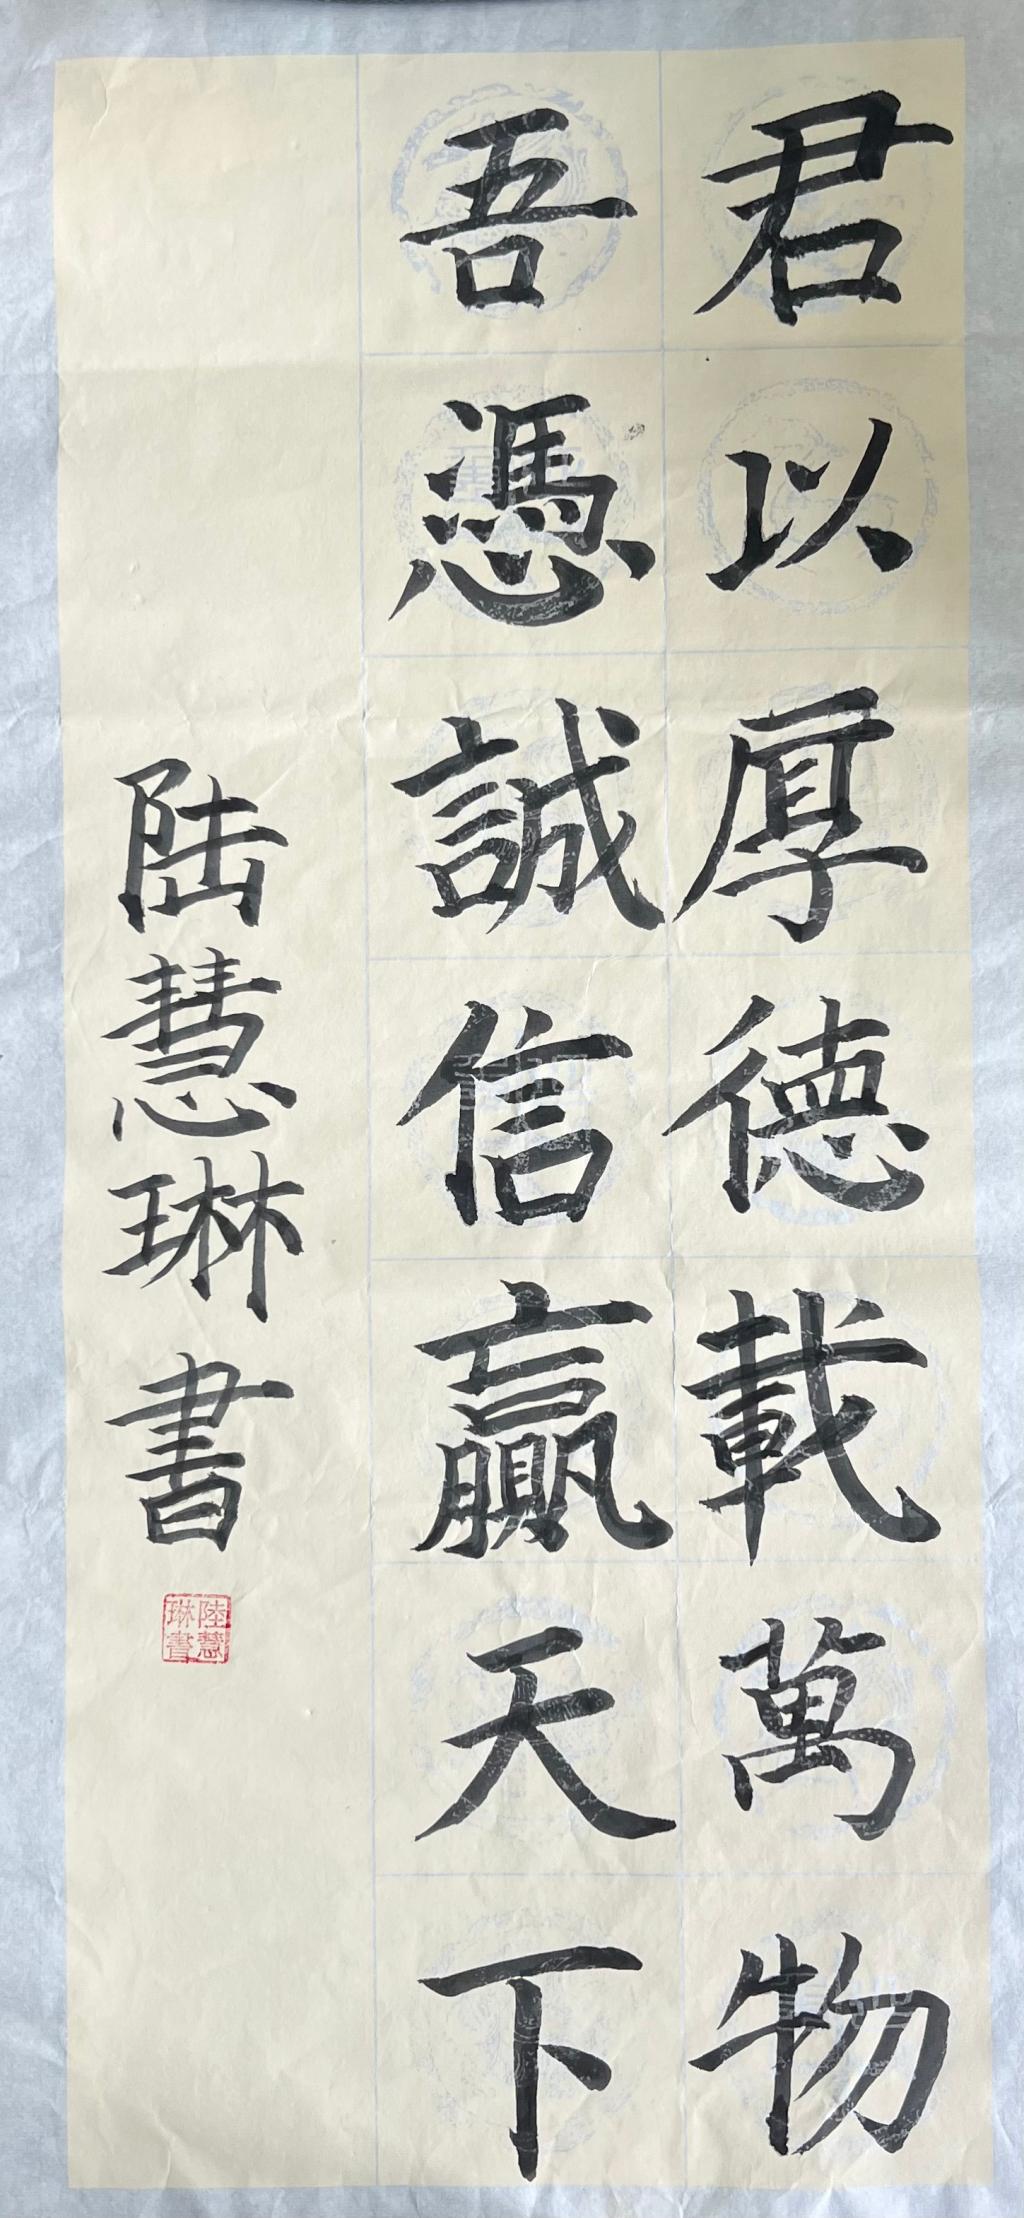 君以厚德載萬物
吾憑誠信贏天下
陸慧琳書
陸慧
琳書